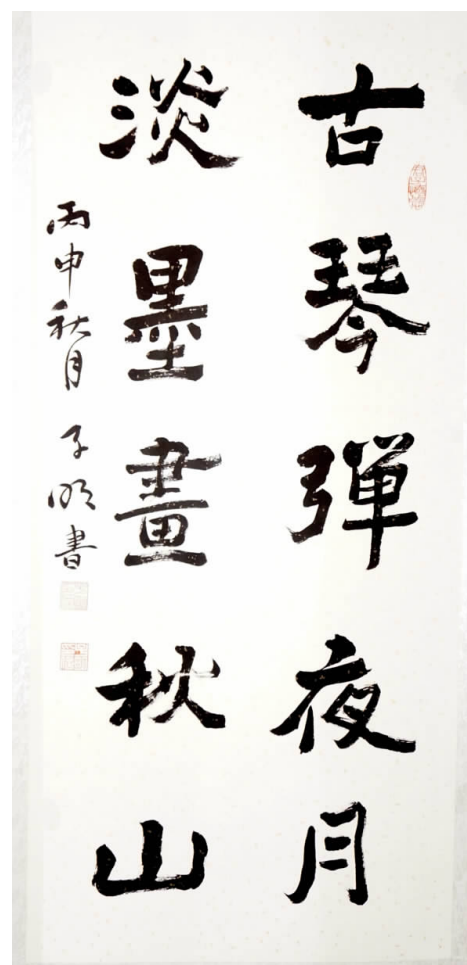 古琴弹夜月
淡墨畫秋山
丙申秋月 子明書